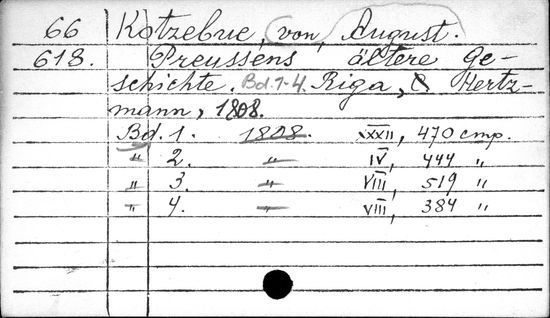 66 Kotzebue, von, August.
618. Preussens ältere Ge-
schichte. Bd. 1-4. Riga, Hertz-
mann, 1808.
Bd. 1. 1808. XXXII, 470 стр.
" 2. " IV, 444 "
" 3. " VIII, 519 "
" 4. " VIII, 384 "